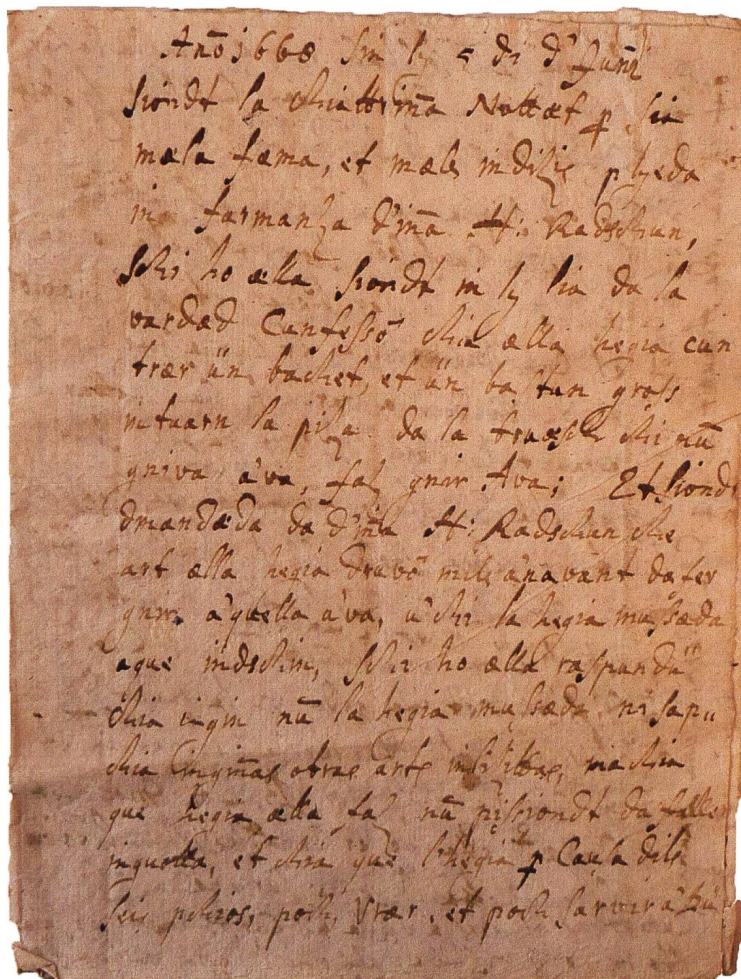 Año 1668 sün ls 5 di d' Juny
siondt la chiattrina Nuttæt p sia
mæla fæma, et mæls indizis plgeda
in farmanza d'ina H: Radschun,
schi ho ælla siondt in ls sia da la
vardæd Cunfessô chia ælla hegia cun
trær ün bachet, et ün bastun gross
intuorn la piza da la truesch chi nū
gniva a'va, faz gnir Ava; Et siondt
dmandæda da d'ina H: Radschun che
art ælla hegia druvô mils a'navant da fer
gnir a'quella a'va, u' chi la hegia mussæda
aque indschin, schi ho ælla raspundü
chia ingün nū la hegia mussæda, ni sapu
chia ingünas otras arts
que hegia ælla faz nū pissiondt da faller
inquella, et chia que l'hegia p Causa dils
seis pchios, poch Vrær, et poch sarvir a' Dü